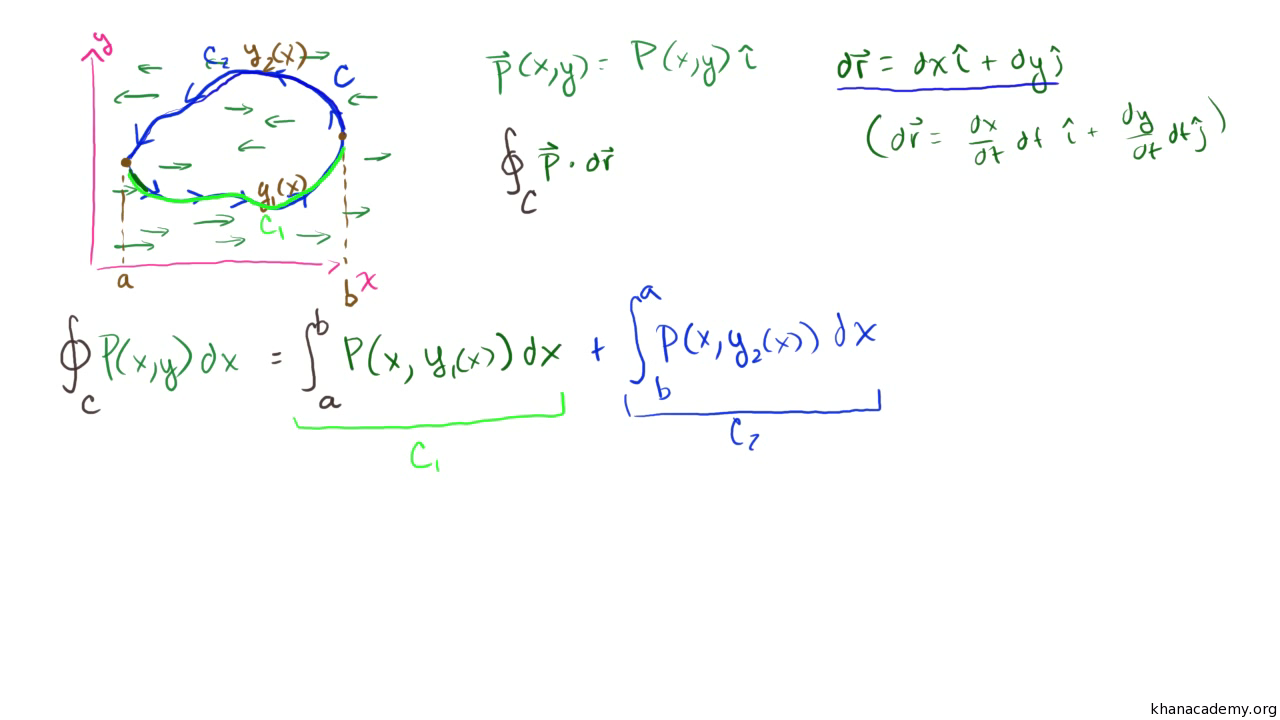 y
C₂ y₂(x)
C
y₁(x)
C₁
a
b x
p⃗(x,y) = P(x,y) î
dr⃗ = dx î + dy ĵ
(dr⃗ = dx/dt dt î + dy/dt dt ĵ)
∮_C p⃗ · dr⃗
∮_C P(x,y) dx = ∫_a^b P(x, y₁(x)) dx + ∫_b^a P(x, y₂(x)) dx
C₁ C₂
khanacademy.org